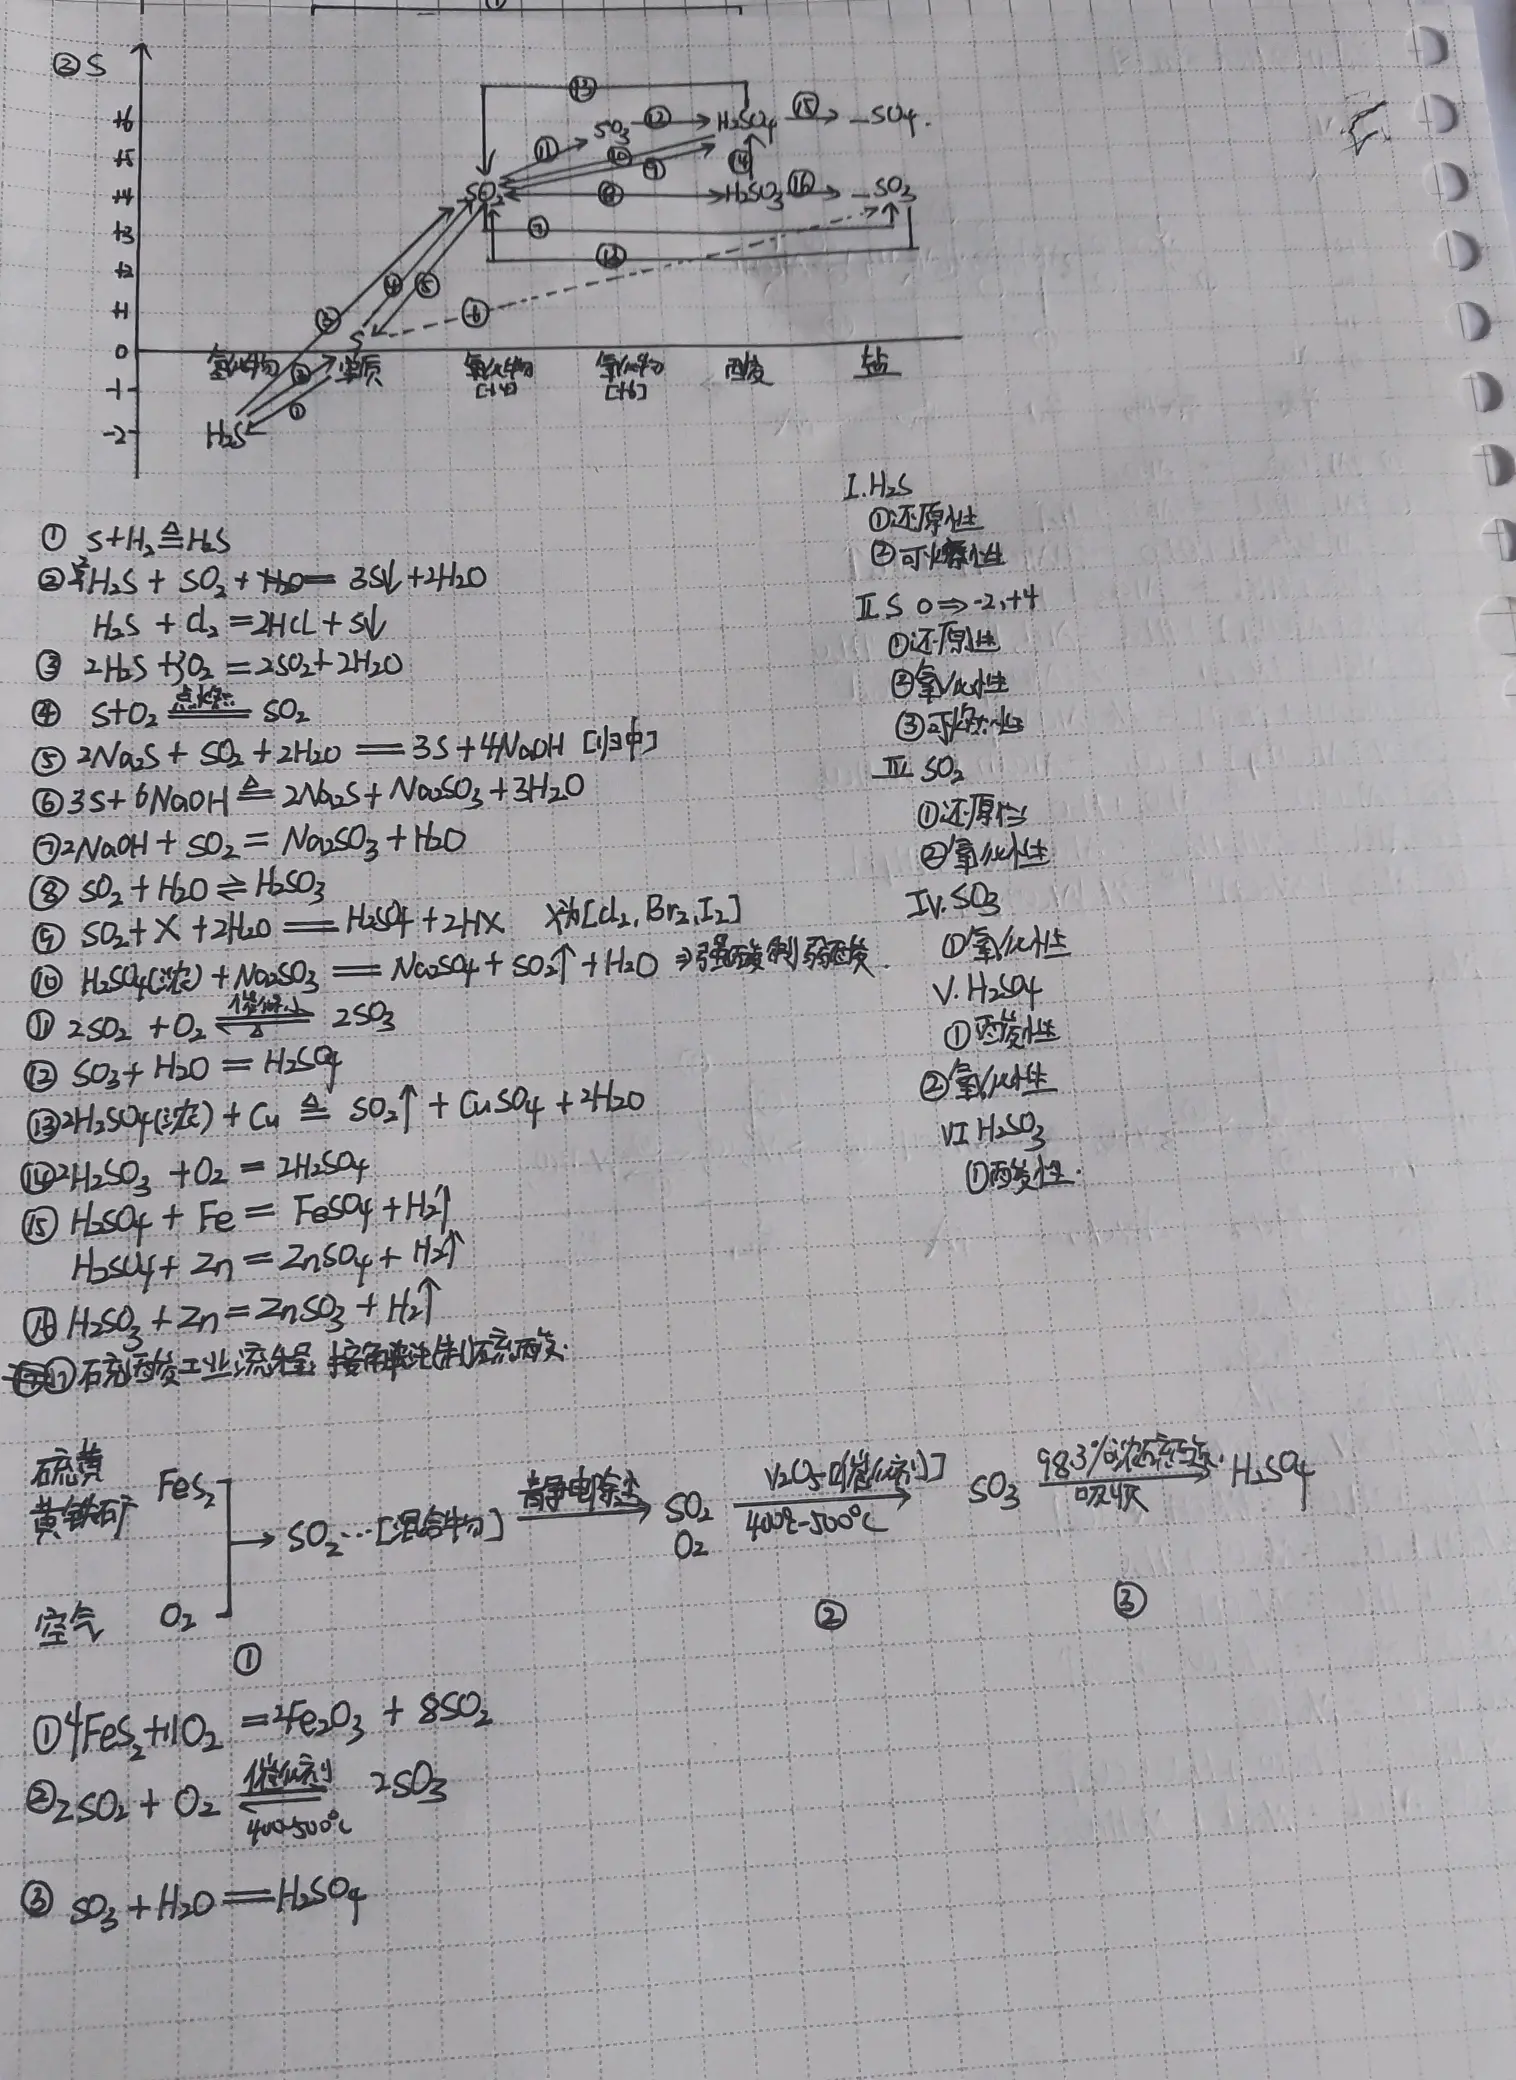 ② S
+6
+5
+4
+3
+2
+1
0
-1
-2
⑬
SO₃ ⑫ H₂SO₄ ⑮ _SO₄.
⑪ ⑩ ⑨ ⑭
SO₂ ⑧ H₂SO₃ ⑯ _SO₃
⑦
⑫
③ ④ ⑤ ⑥
S
氢化物 单质 氧化物[+4] 氧化物[+6] 酸 盐
② ①
H₂S
① S+H₂ ≜ H₂S
② 2H₂S + SO₂ + = 3S↓+2H₂O
H₂S + Cl₂ = 2HCl + S↓
③ 2H₂S +3O₂ = 2SO₂+2H₂O
④ S+O₂ 点燃 SO₂
⑤ 2Na₂S + SO₂ +2H₂O = 3S+4NaOH [归中]
⑥ 3S+6NaOH ≜ 2Na₂S+Na₂SO₃+3H₂O
⑦ 2NaOH + SO₂ = Na₂SO₃ + H₂O
⑧ SO₂ + H₂O ⇌ H₂SO₃
⑨ SO₂+X+2H₂O = H₂SO₄+2HX X为[Cl₂, Br₂, I₂]
⑩ H₂SO₄(浓)+Na₂SO₃ = Na₂SO₄+SO₂↑+H₂O ⇒强酸制弱酸.
⑪ 2SO₂ +O₂ 催化剂 ⇌ △ 2SO₃
⑫ SO₃+H₂O = H₂SO₄
⑬ 2H₂SO₄(浓)+Cu ≜ SO₂↑+CuSO₄+2H₂O
⑭ 2H₂SO₃ +O₂ = 2H₂SO₄
⑮ H₂SO₄ + Fe = FeSO₄+H₂↑
H₂SO₄+ Zn = ZnSO₄+H₂↑
⑯ H₂SO₃ +Zn = ZnSO₃+H₂↑
⑰ 硫酸工业流程 接触法制硫酸.
I. H₂S
①还原性
②可燃性
II. S 0⇒-2,+4
①还原性
②氧化性
③可燃性
III SO₂
①还原性
②氧化性
IV. SO₃
①氧化性
V. H₂SO₄
①酸性
②氧化性
VI H₂SO₃
①酸性.
硫黄
黄铁矿 FeS₂
空气 O₂
→ SO₂…[混合物] 静电除尘 SO₂ O₂ V₂O₅[催化剂] 400℃-500℃ SO₃ 98.3%浓硫酸 吸收 H₂SO₄
① ② ③
① 4FeS₂+11O₂ = 2Fe₂O₃ + 8SO₂
② 2SO₂ + O₂ 催化剂 ⇌ 400-500℃ 2SO₃
③ SO₃ +H₂O = H₂SO₄